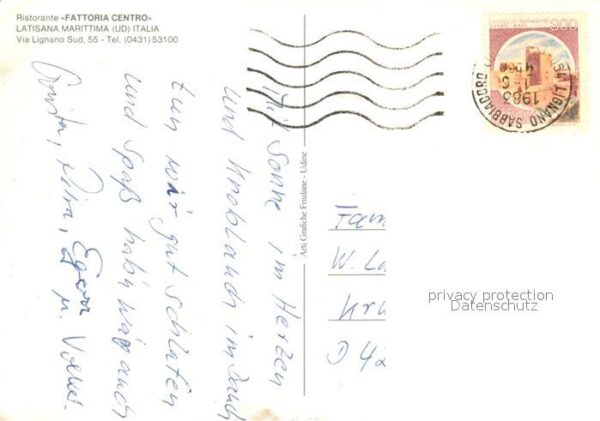 Ristorante «FATTORIA CENTRO»
LATISANA MARITTIMA (UD) ITALIA
Via Lignano Sud, 55 - Tel. (0431) 53100
Mit Sonne im Herzen
und Knoblauch im Band
tun wir gut schlafen
und Spaß habn wir auch
Egon
u. Volker
Arti Grafiche Friulane - Udine
300
LIGNANO SABBIADORO
1983
Fam
W. La
Kru
D 42
privacy protection
Datenschutz